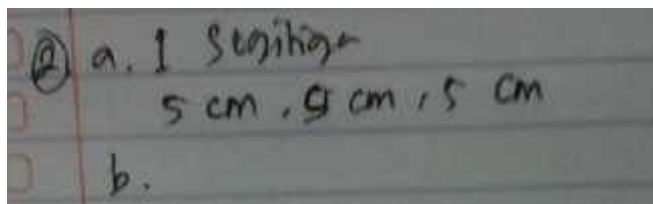 ② a. 1 Segitiga
5 cm, 5 cm, 5 cm
b.